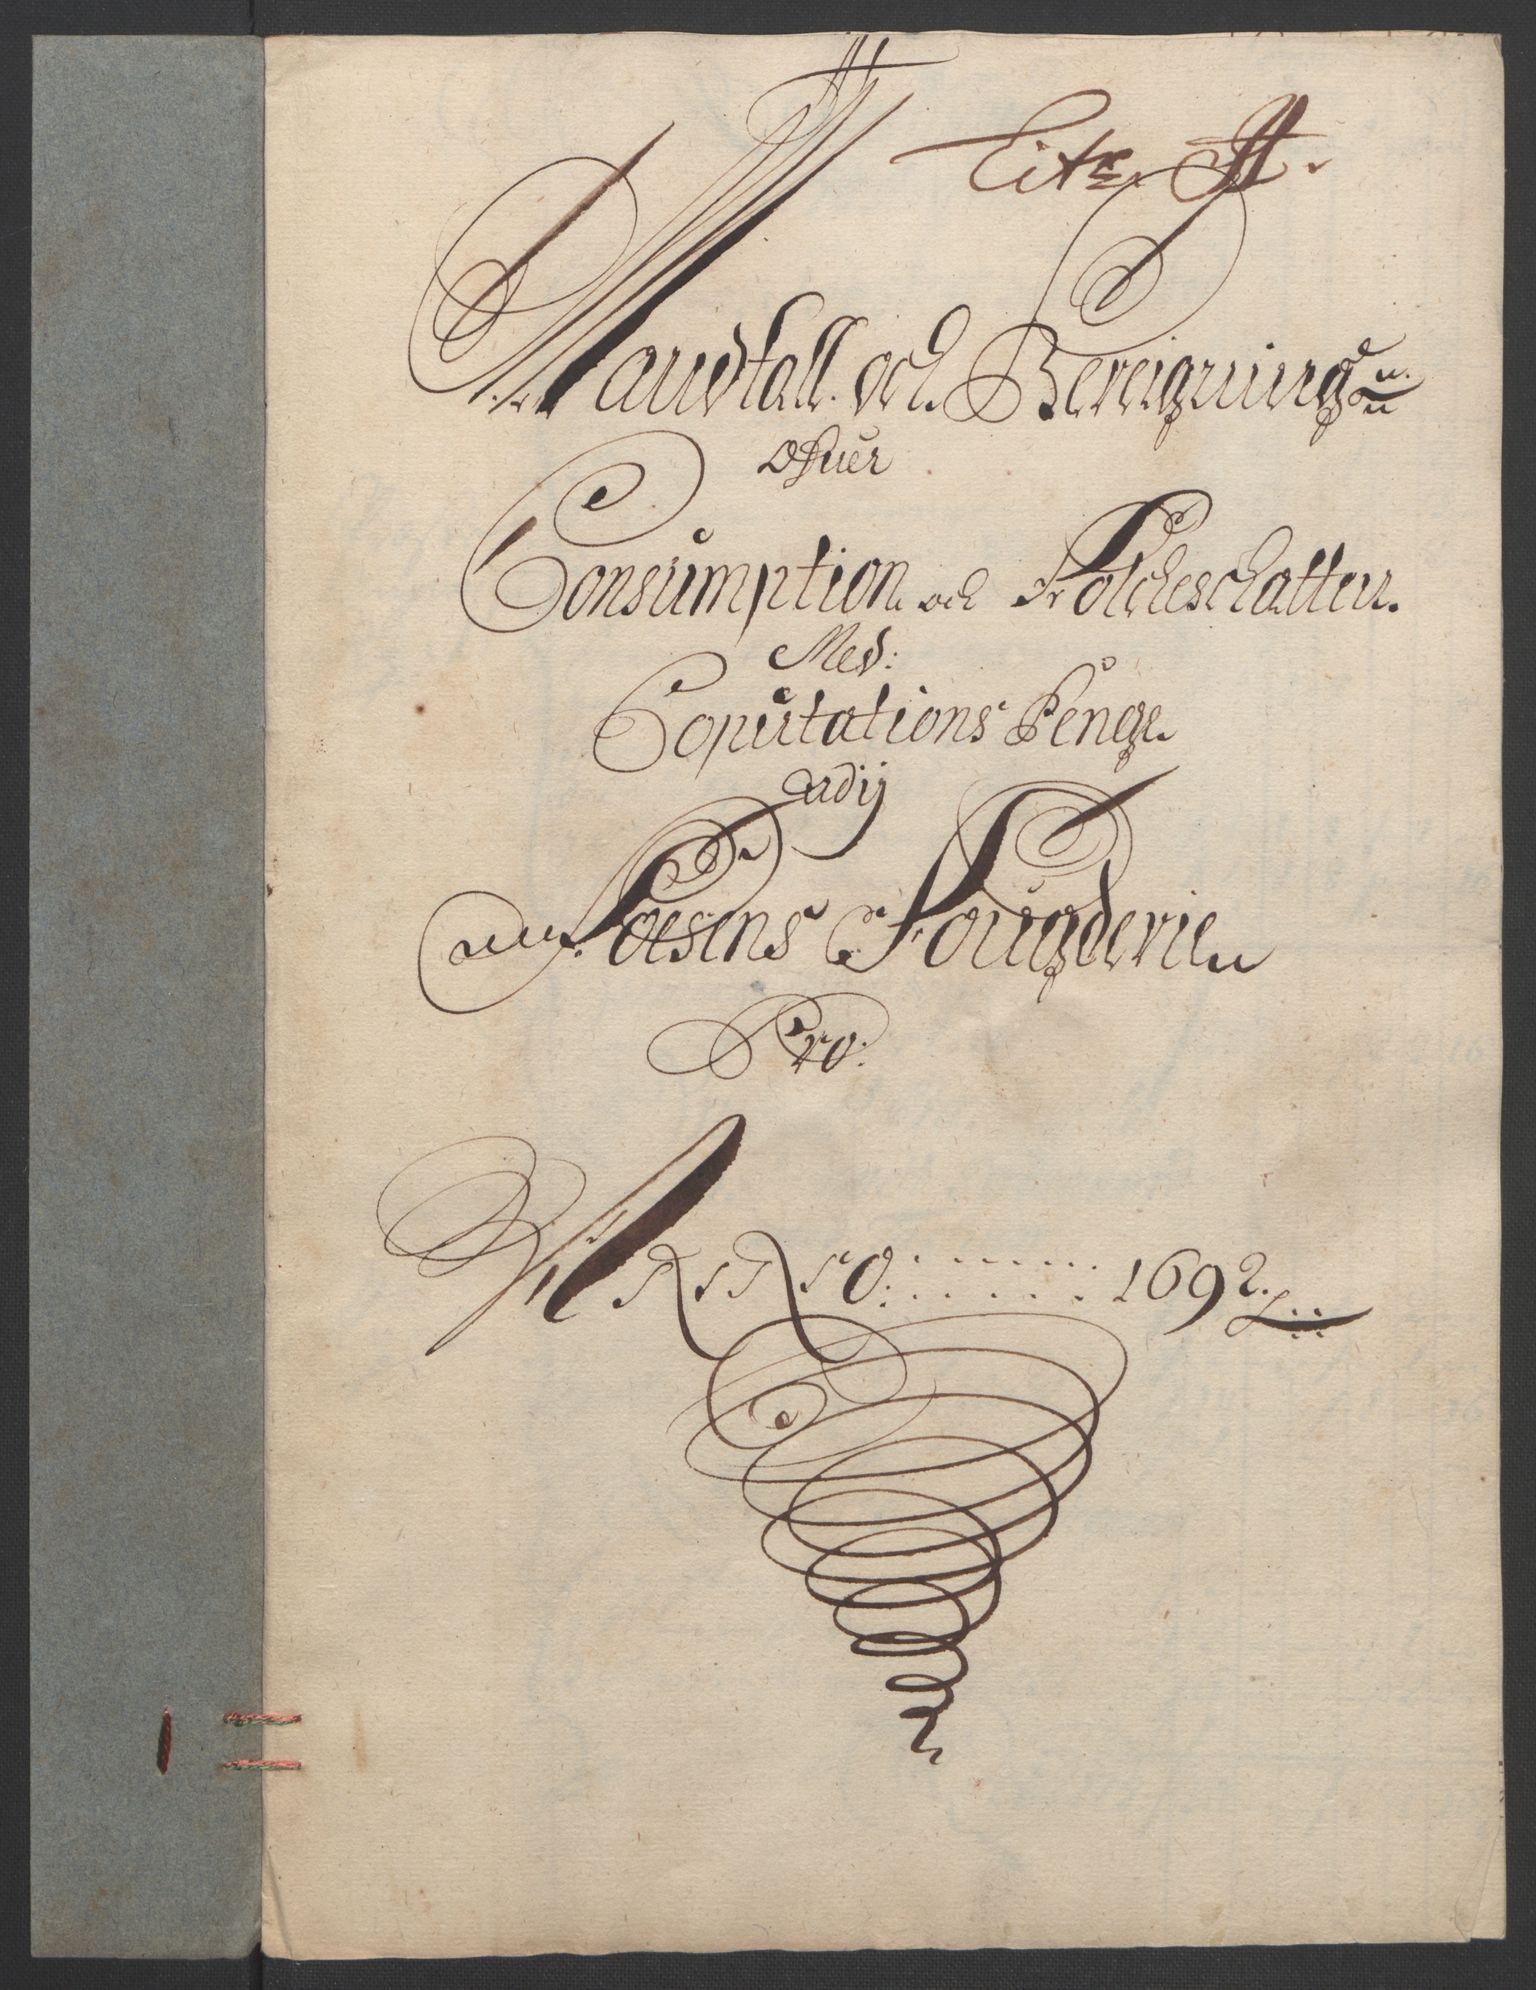 Litr. A.
Mandtall och Bereigning
ofuer
Consumption och Folcheschatten.
Med:
Coputations Penge.
udij
Foesens Fougderie
Pro:
ANNO: 1692.